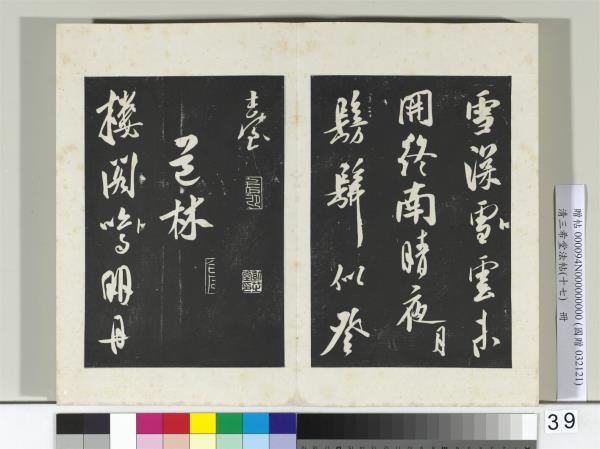 雪深雪雲未
開終南晴夜月
髣髴似登
臺
道林
樓閣鳴明丹
贈帖 000094N000000000 (國贈 032121)
清三希堂法帖(十七) 冊
39